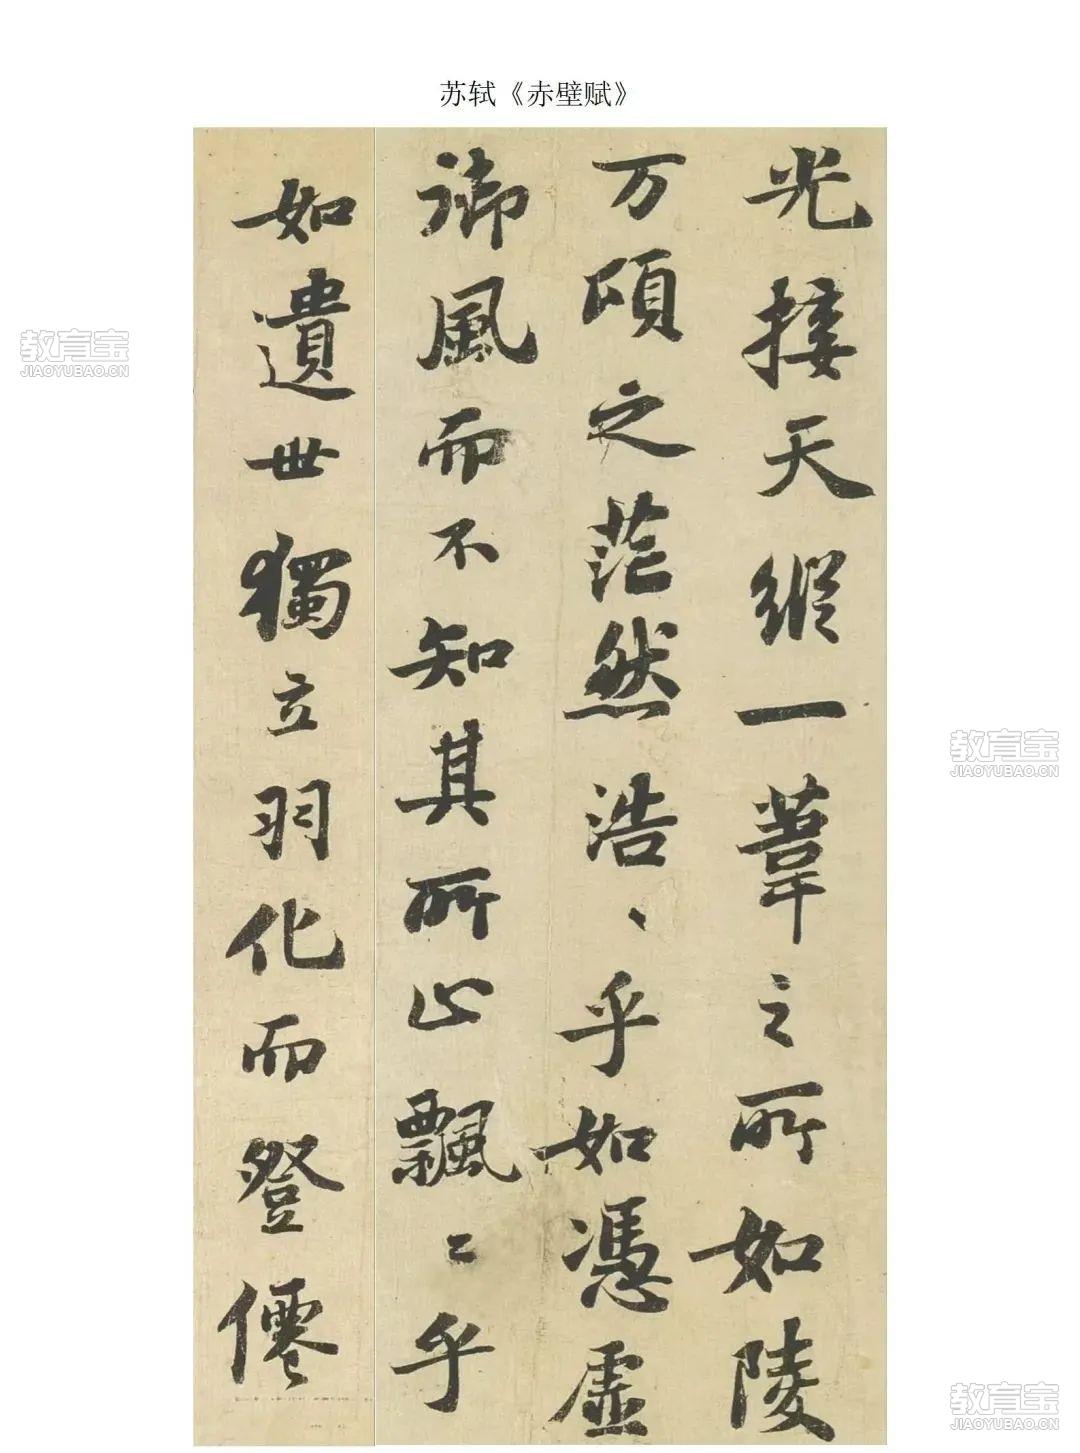 苏轼《赤壁赋》
光接天縱一葦之所如陵
万頃之茫然浩、乎如馮虛
御風而不知其所止飄〻乎
如遺世獨立羽化而登僊
教育宝
JIAOYUBAO.CN
教育宝
JIAOYUBAO.CN
教育宝
JIAOYUBAO.CN